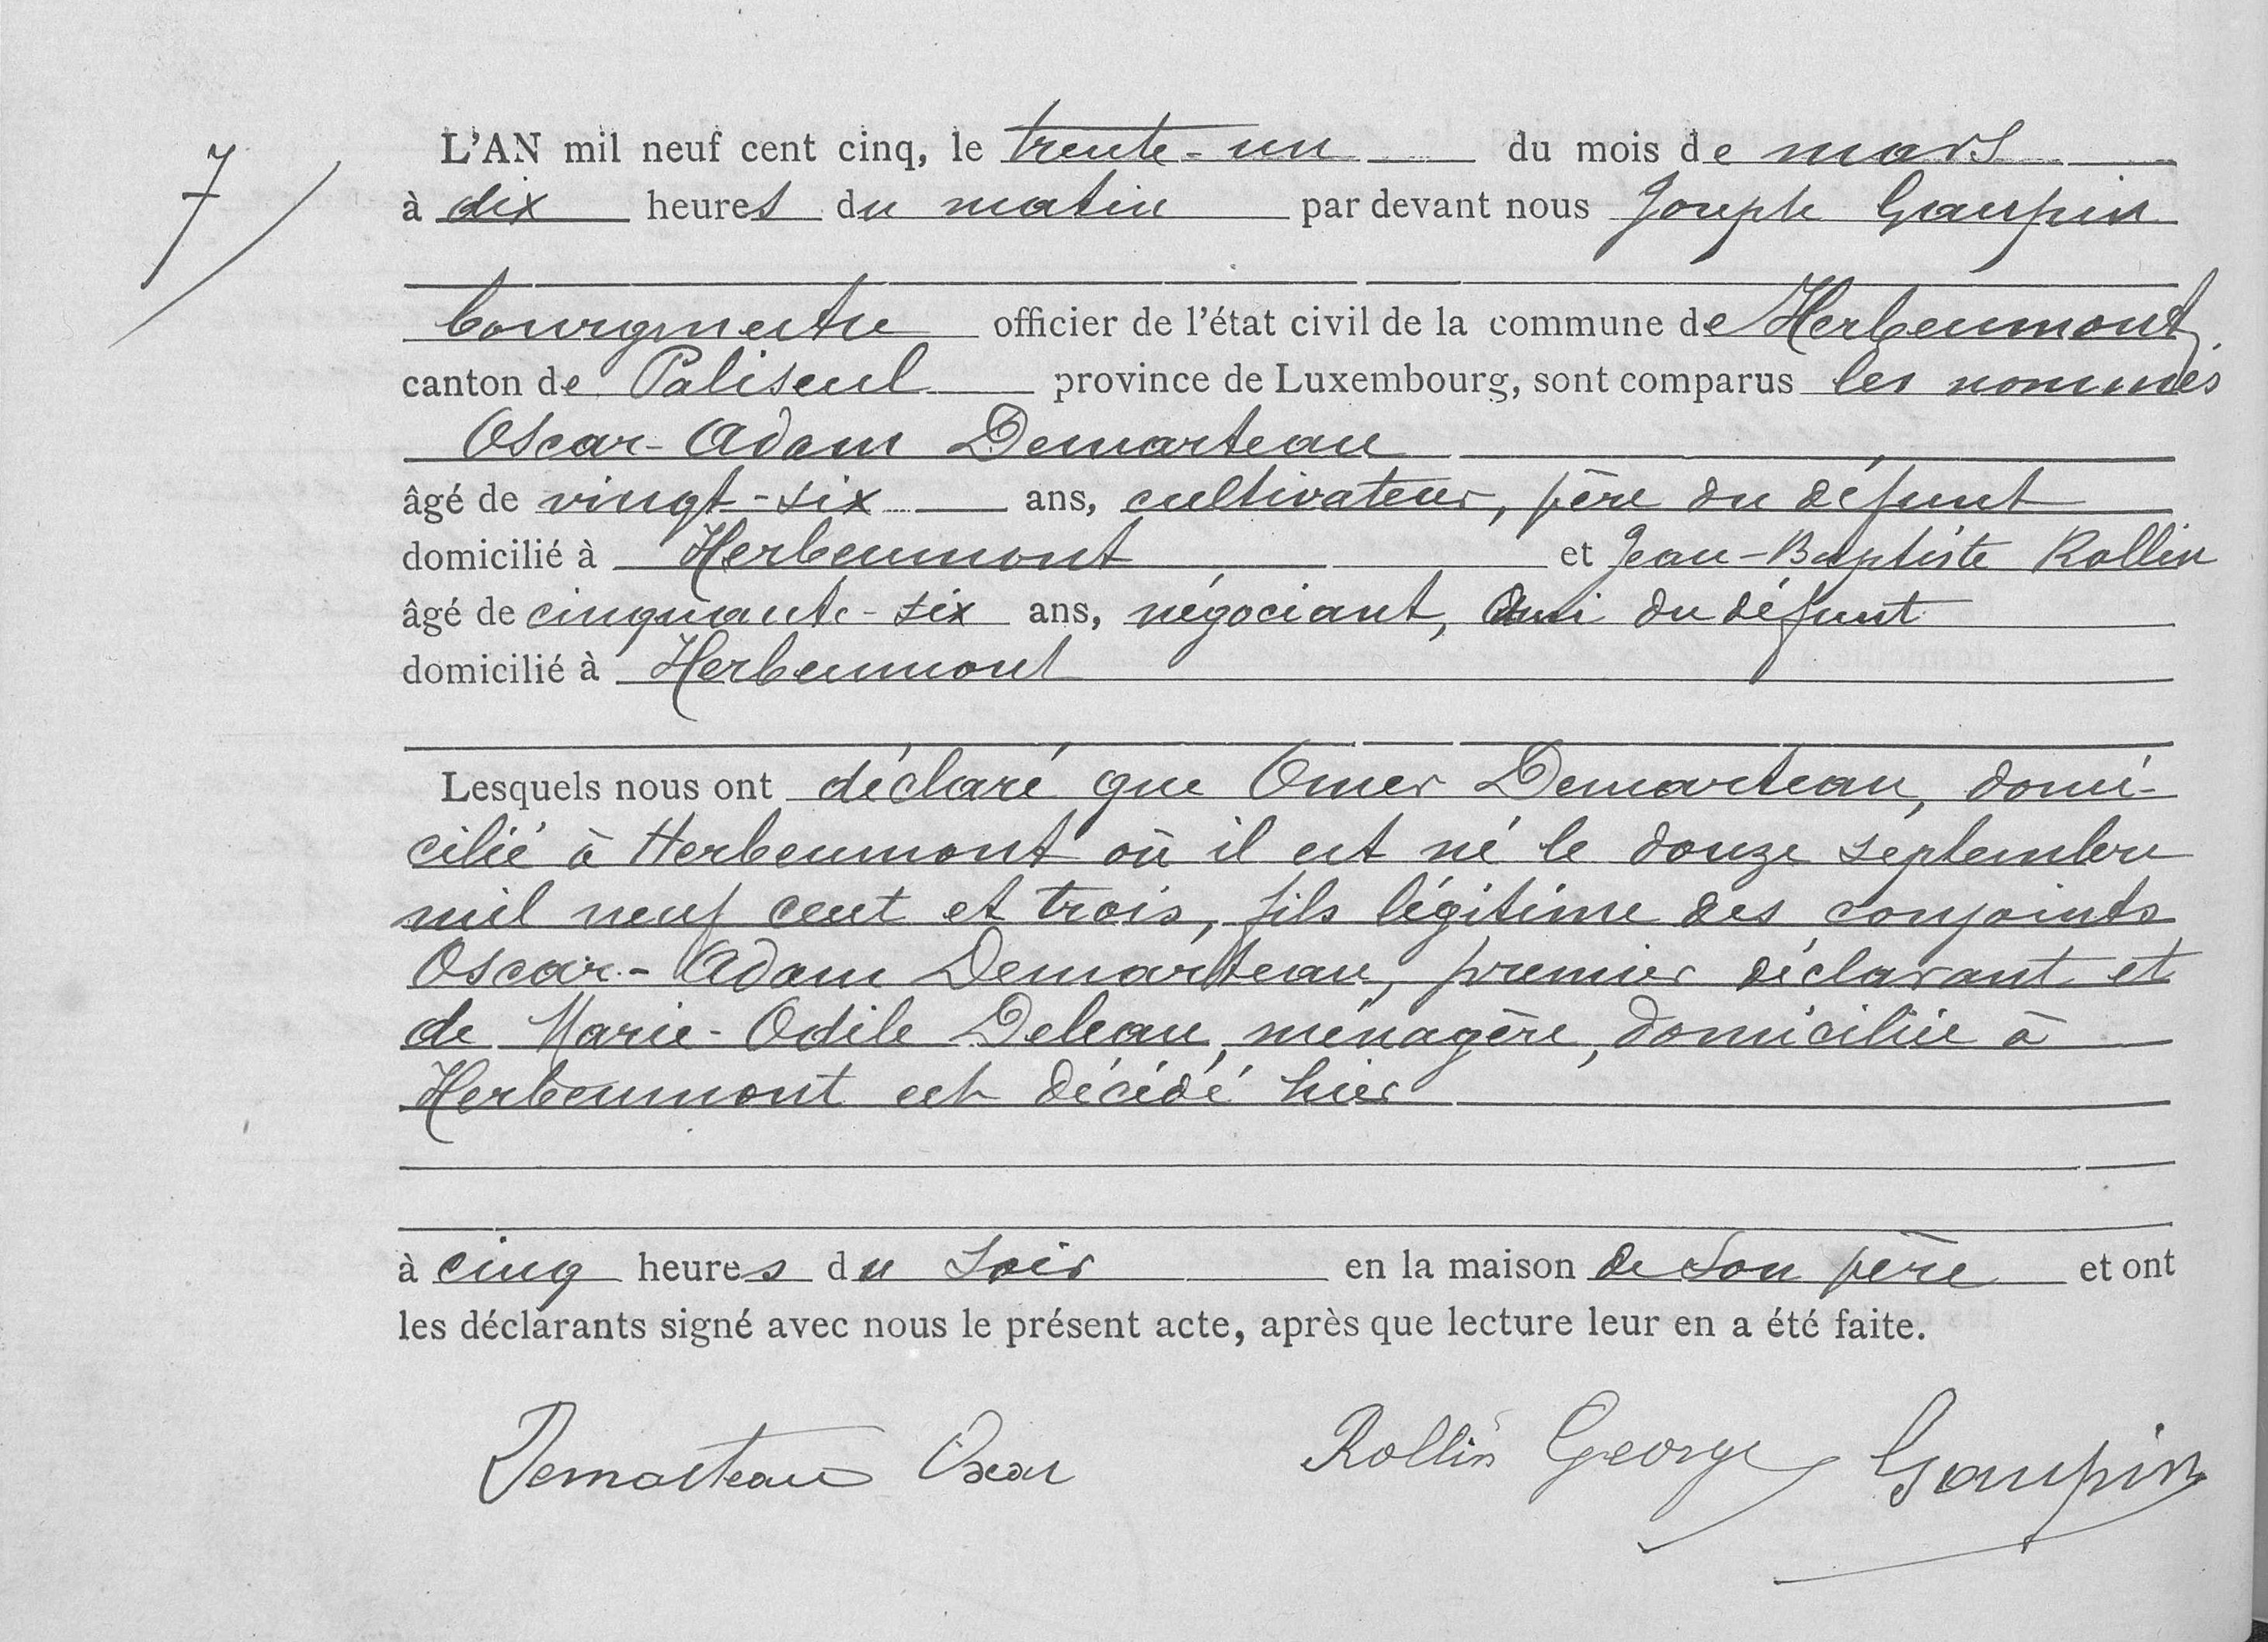 7
L'AN mil neuf cent cinq, le trente-un du mois de mars
à dix heures du matin par devant nous Joseph Gaupin
bourgmestre officier de l'état civil de la commune de Herbeumont,
canton de Paliseul province de Luxembourg, sont comparus les nommés
Oscar-Adam Demarteau
âgé de vingt-six ans, cultivateur, père du défunt
domicilié à Herbeumont et Jean-Baptiste Rollin
âgé de cinquante-six ans, négociant, Ami du défunt
domicilié à Herbeumont
Lesquels nous ont déclaré que Omer Demarteau, domi-
cilié à Herbeumont où il est né le douze septembre
mil neuf cent et trois, fils légitime des conjoints
Oscar-Adam Demarteau, premier déclarant et
de Marie-Odile Deleau, ménagère, domiciliée à
Herbeumont est décédé hier
à cinq heures du soir en la maison de son père et ont
les déclarants signé avec nous le présent acte, après que lecture leur en a été faite.
Demarteau Oscar Rollin George Gaupin